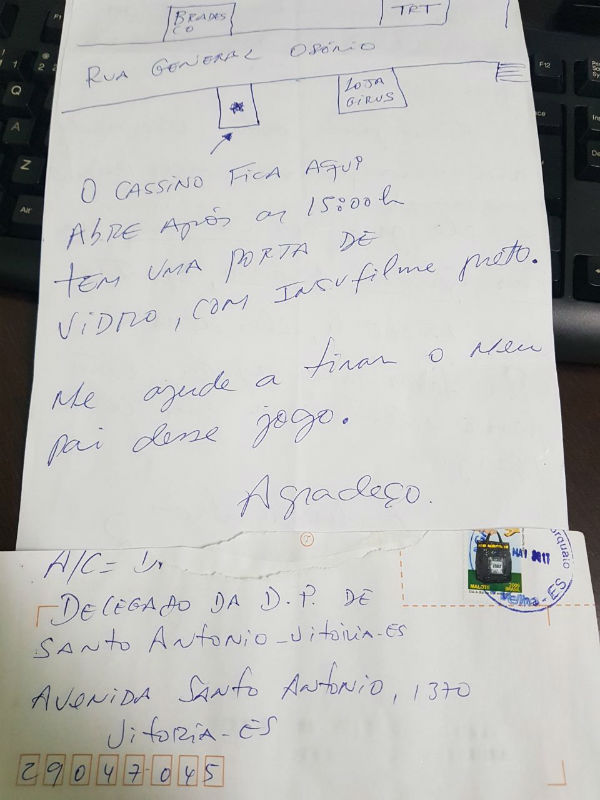 BRADES
CO
TRT
RUA GENERAL OSÓRIO
LOJA
GIRUS
O CASSINO FICA AQUI
ABRE APÓS as 15:00h
TEM UMA PORTA DE
VIDRO, COM INSUfilme preto.
Me ajude a tirar o meu
pai desse jogo.
Agradeço.
A/C=
DELEGADO DA D.P. DE
SANTO ANTONIO-VITÓRIA-ES
AVENIDA SANTO ANTONIO, 1370
VITORIA-ES
29047-045
MAI 2017
Velha-ES